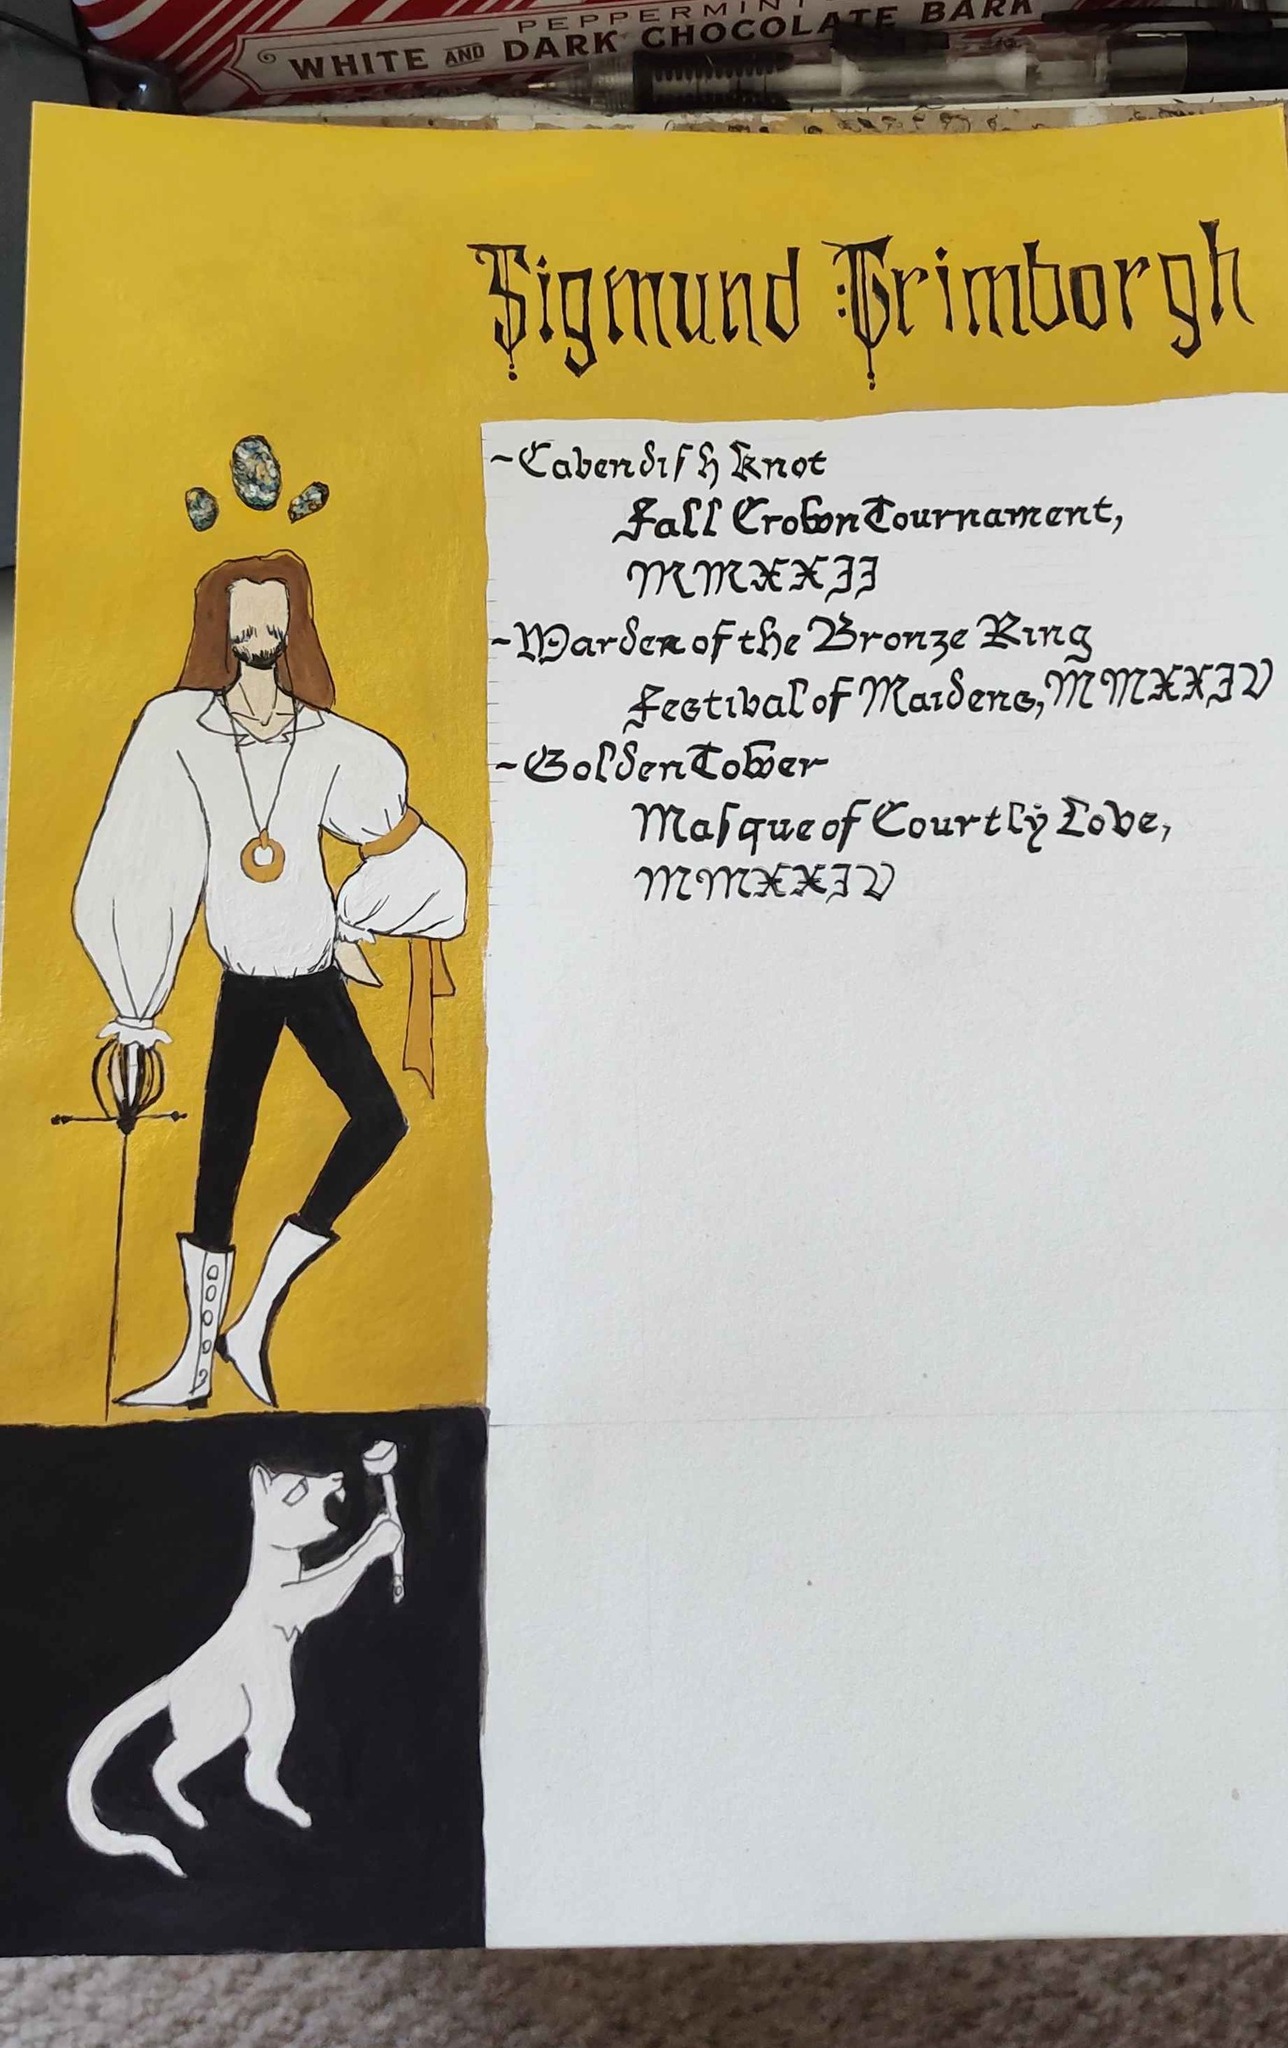 PEPPERMINT
WHITE AND DARK CHOCOLATE BARK
Sigmund Grimborgh
~Cavendish Knot
Fall Crown Tournament,
MMXXII
~Warden of the Bronze Ring
Festival of Maidens, MMXXIV
~Golden Tower
Masque of Courtly Love,
MMXXIV